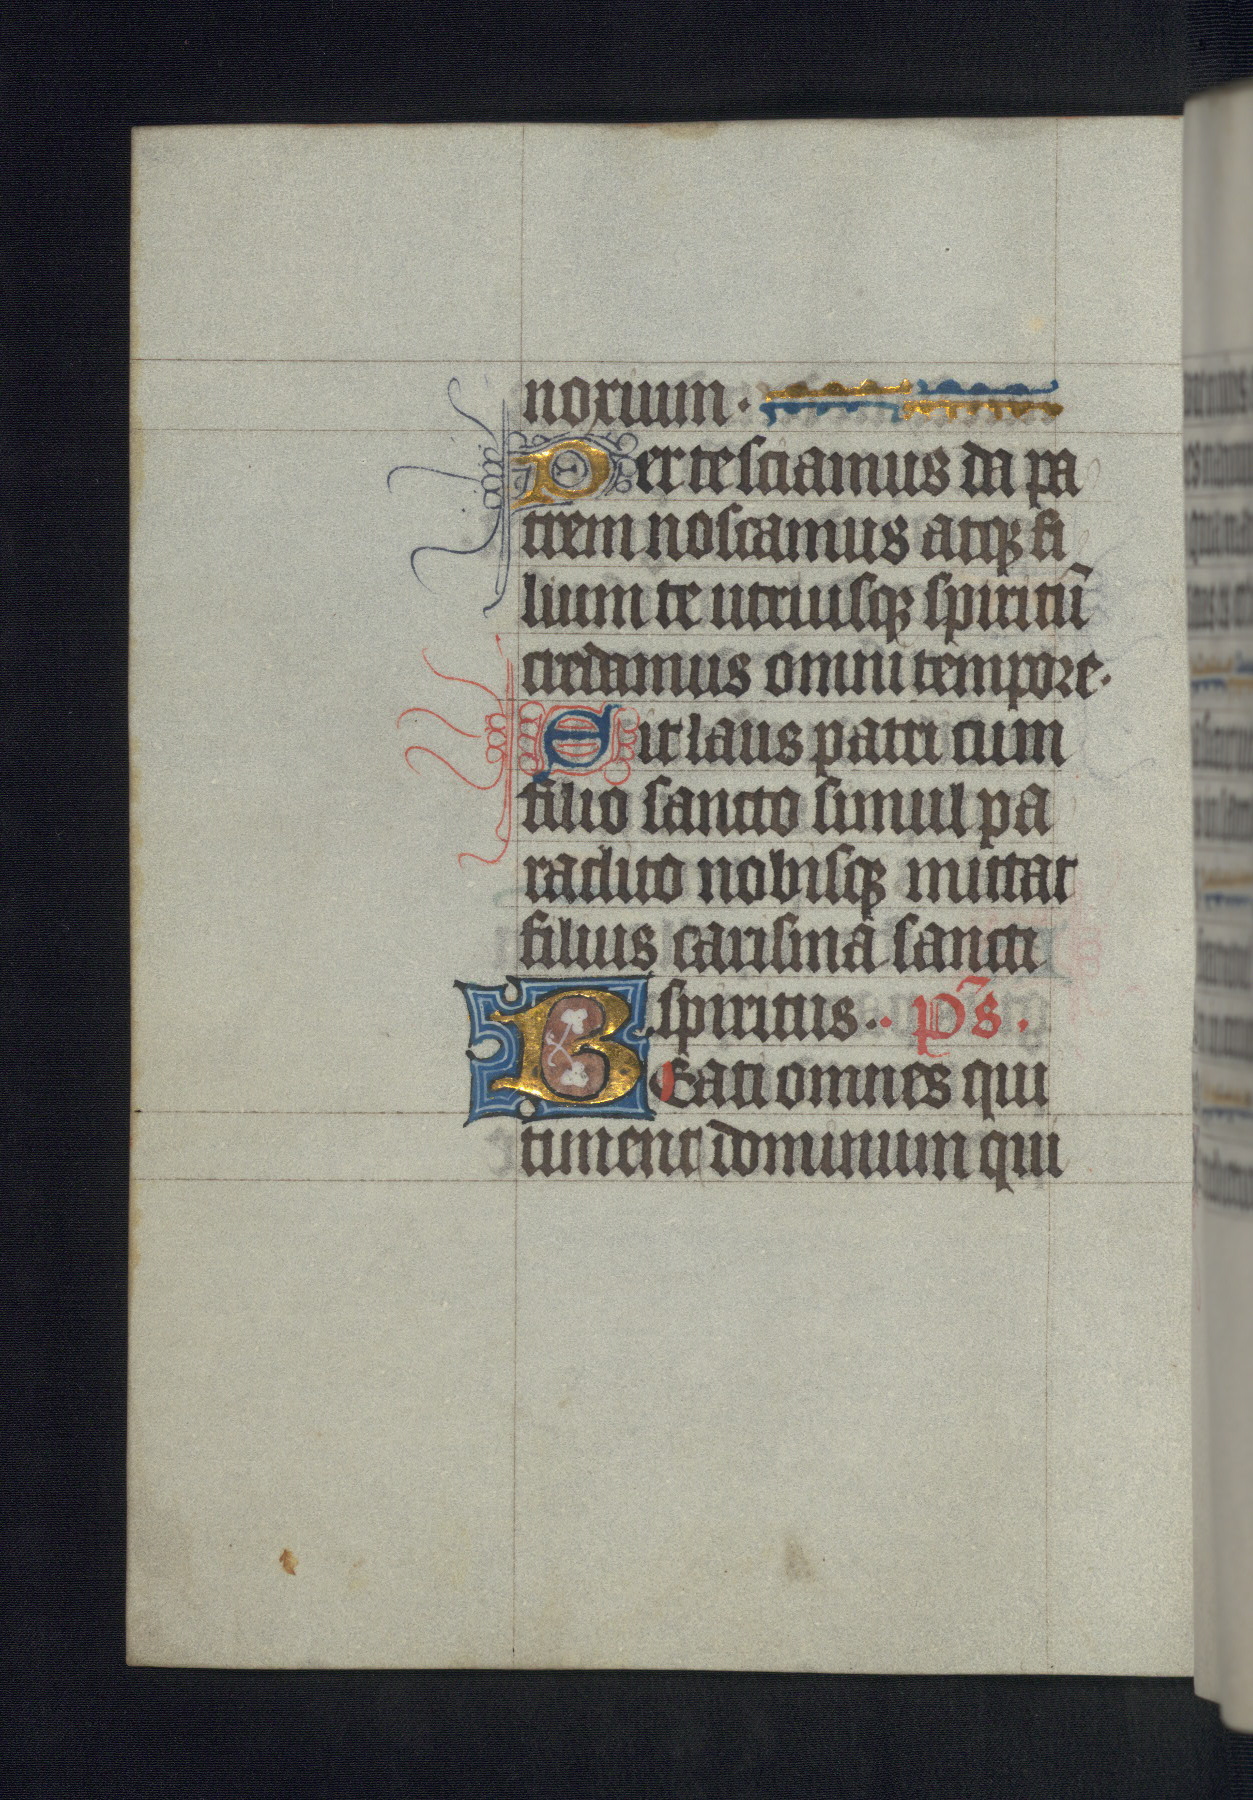 noxium.
Per te sciamus da pa
trem noscamus atqꝫ fi
lium te utriusqꝫ spiritū
credamus omni tempore.
Sit laus patri cum
filio sancto simul pa
raclito nobisqꝫ mittat
filius carismā sancti
spiritus.. p̄s.
BEati omnes qui
timent dominum qui